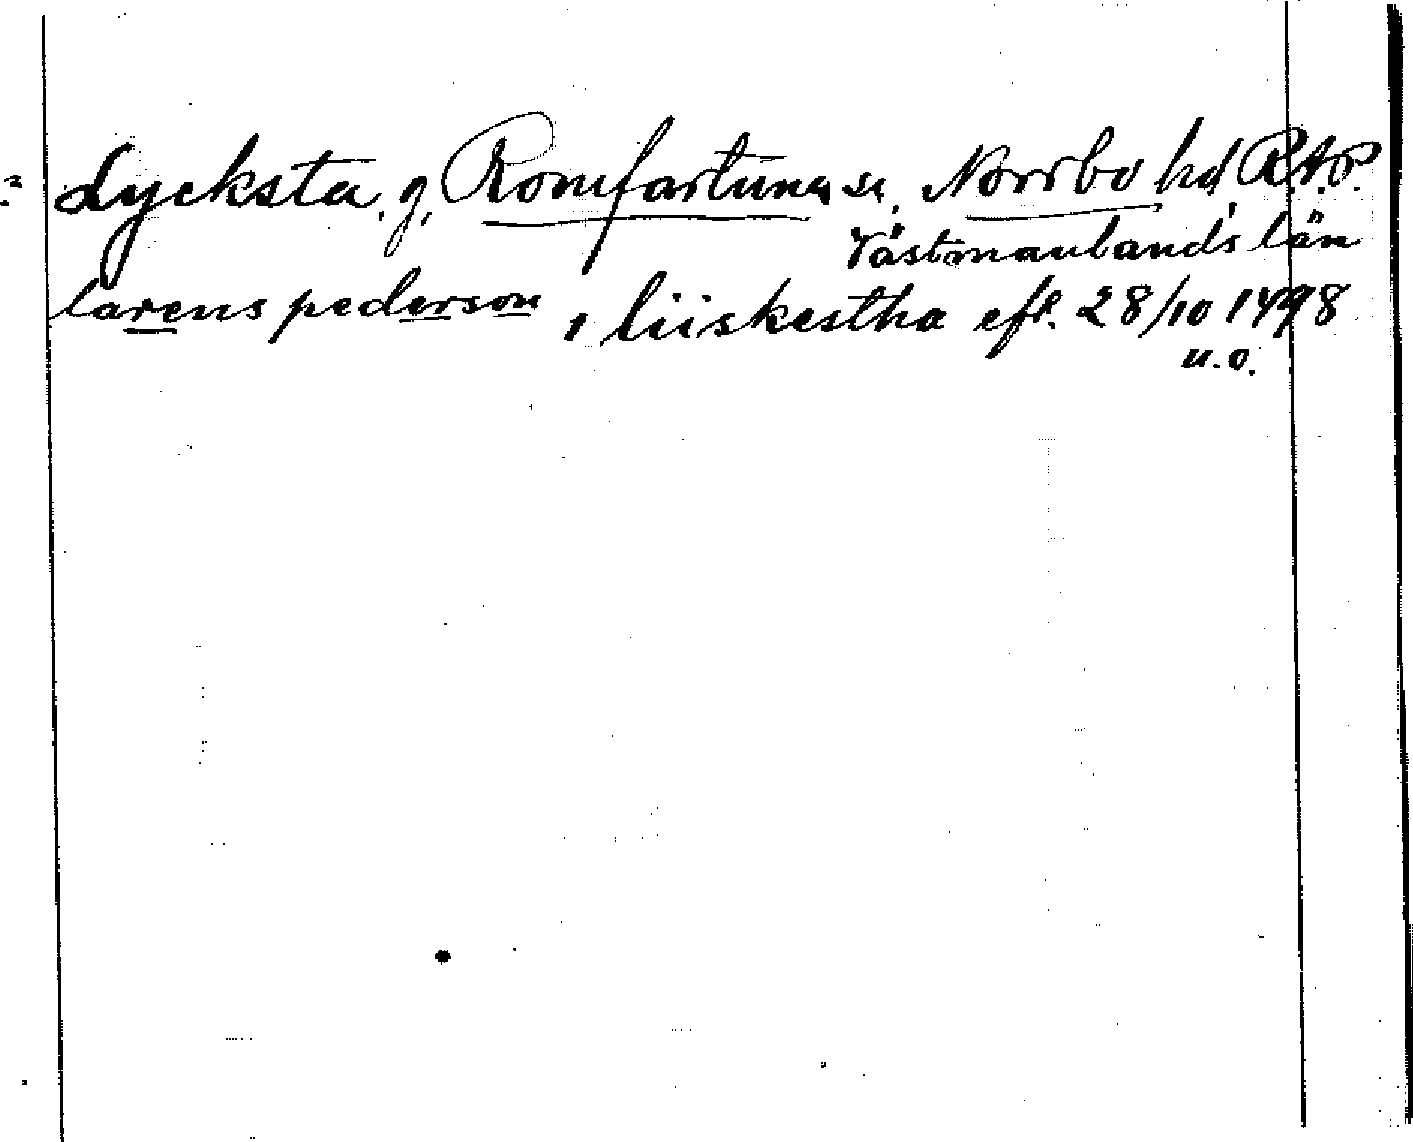 Lycksta, g, Romfartuna sn, Norrbo hd, R.A.P.
Västmanlands län
larens pederson i liiskestha eft. 28/10 1498
u.o.